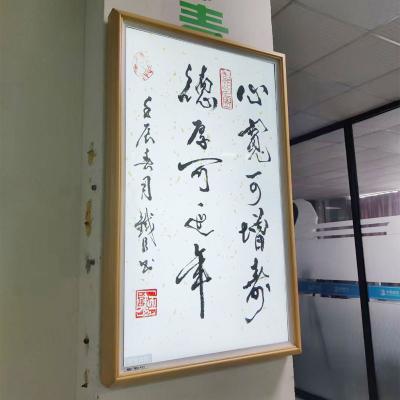 心寬可增壽
德厚可延年
壬辰春月